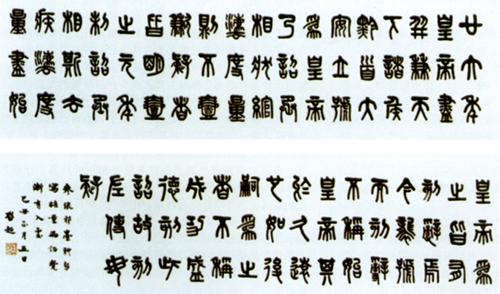 廿六年
皇帝盡
并兼天
下諸侯
黔首大
安立號
為皇帝
乃詔丞
相狀綰
灋度量
則不壹
歉疑者
皆明壹
之元年
制詔丞
相斯去
疾灋度
量盡始
皇帝為
之皆有
刻辭焉
今襲號
而刻辭
不稱始
皇帝其
於久遠
也如後
嗣為之
者不稱
成功盛
德刻此
詔故刻
左使毋
疑